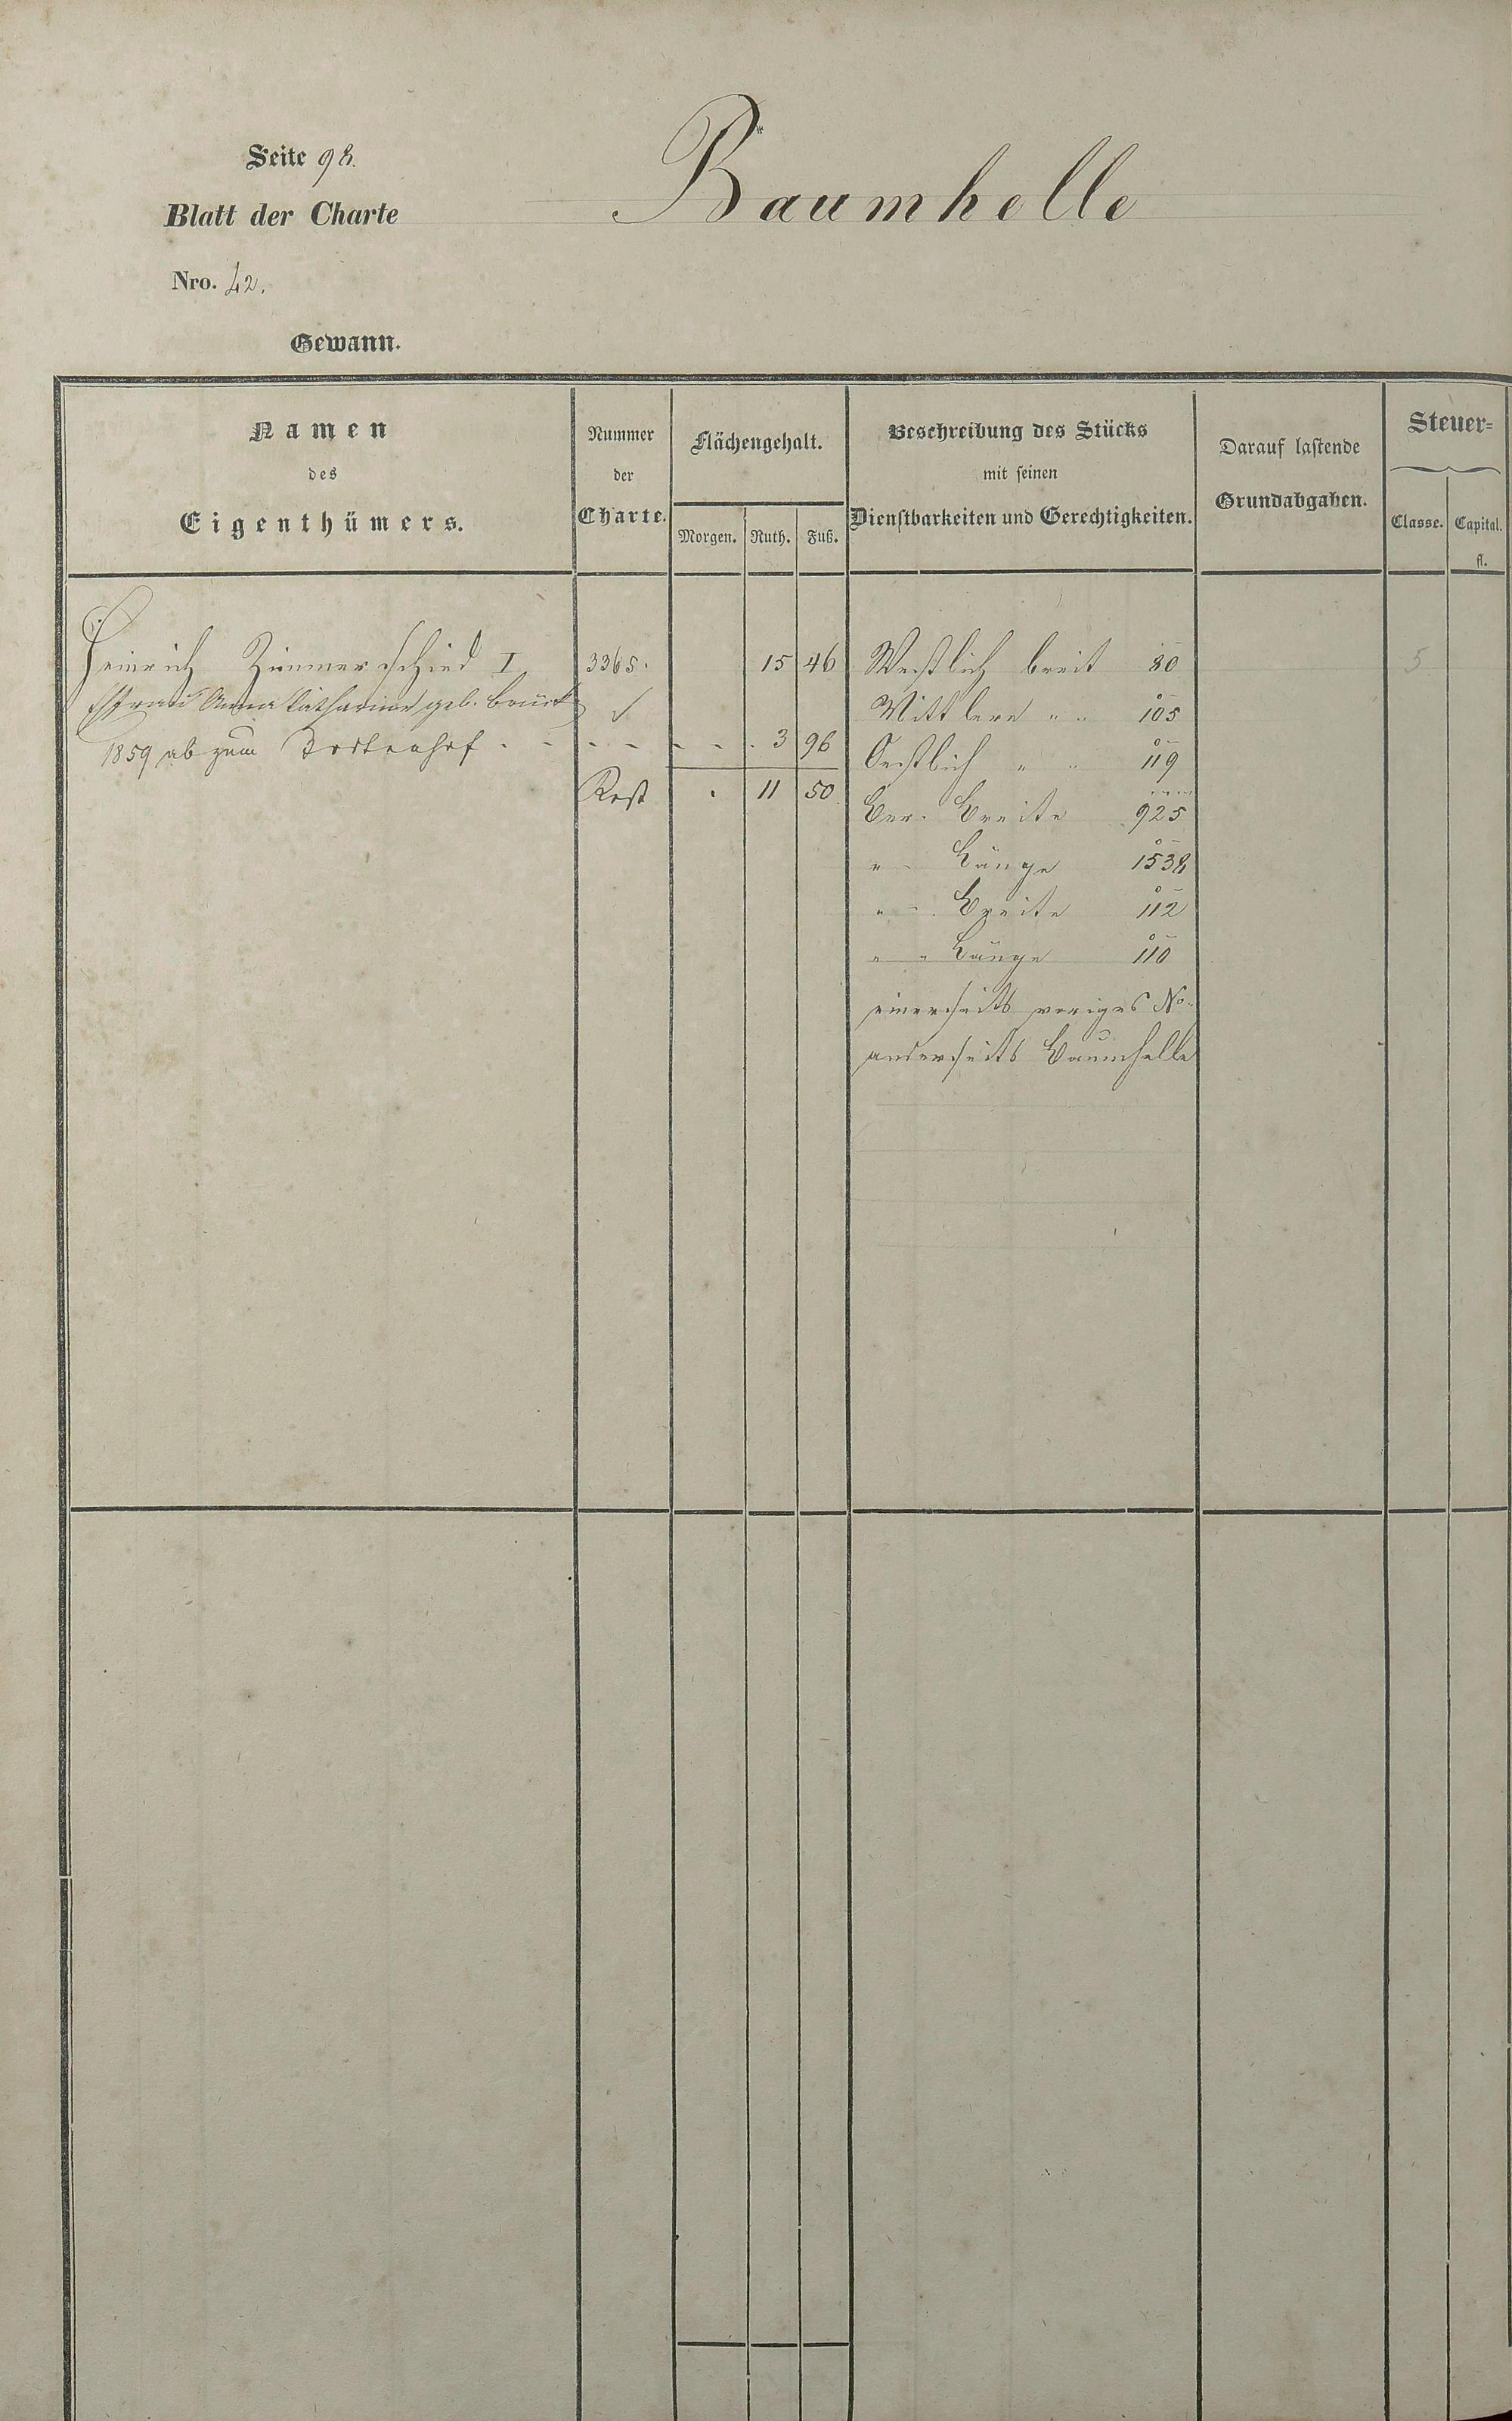 Seite 98.
Baumhelle
Blatt der Charte
Nro. 42.
Gewann.
Namen
des
Eigenthümers.
Nummer
der
Charte.
Flächengehalt.
Morgen. Ruth. Fuß.
Beschreibung des Stücks
mit seinen
Dienstbarkeiten und Gerechtigkeiten.
Darauf lastende
Grundabgaben.
Steuer=
Classe. Capital.
fl.
Heinrich Zimmerschied I 3365. 15 46 Westlich breit 80 5
Ehfrau Anna Catharine geb.
Mittlere " " 105
1859 ab zum - - - - - . 3 96
Oestlich " " 119
Rest . 11 50
Ber. Breite 925
" - Länge 1538
" - Breite 112
" " Länge 110
einerseits voriges No.
anderseits Baumhelle